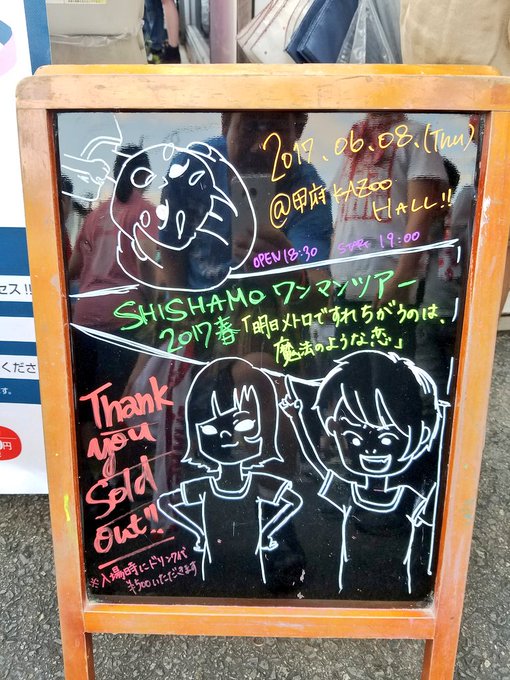 2017.06.08.(Thu)
@甲府 KAZOO
HALL!!
OPEN 18:30 START 19:00
SHISHAMO ワンマンツアー
2017春「明日メトロですれちがうのは、
魔法のような恋」
Thank
you
Sold
Out!!
※入場時にドリンク代
¥500いただきます
セス!!
くださ
ます。
円